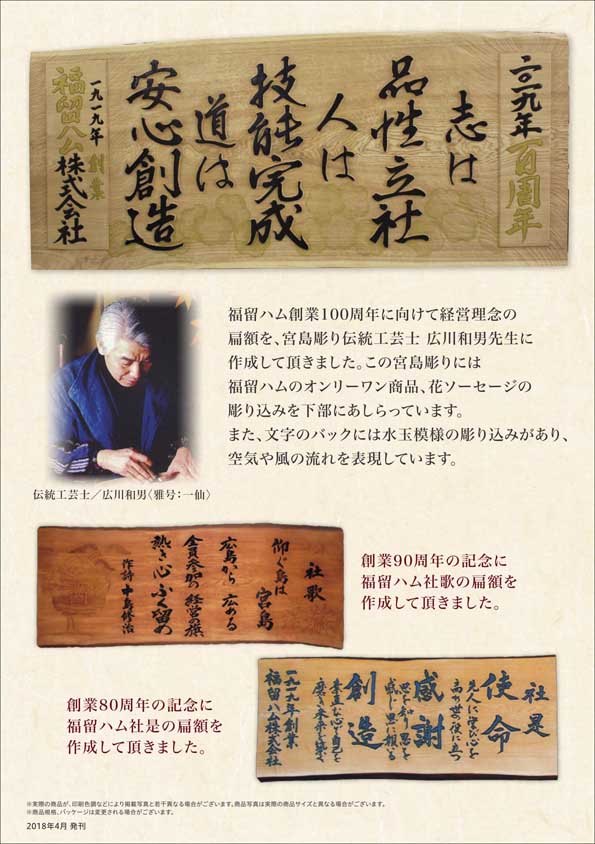 二〇一九年 百周年
志は
品性立社
人は
技能完成
道は
安心創造
一九一九年 創業
福留ハム株式会社
福留ハム創業100周年に向けて経営理念の
扁額を、宮島彫り伝統工芸士 広川和男先生に
作成して頂きました。この宮島彫りには
福留ハムのオンリーワン商品、花ソーセージの
彫り込みを下部にあしらっています。
また、文字のバックには水玉模様の彫り込みがあり、
空気や風の流れを表現しています。
伝統工芸士／広川和男〈雅号：一仙〉
社歌
仰ぐ鳥は 宮島
広島から 広める
全員参加の 経営の旗
熱き心 ふく留の
作詩 中島修治
創業90周年の記念に
福留ハム社歌の扁額を
作成して頂きました。
社是
使命
先人に学び心を
高め世の役に立つ
感謝
恩を知り恩を
感じ恩に報いる
創造
素直な心で自己を
磨き未来を築く
一九一九年創業
福留ハム株式会社
創業80周年の記念に
福留ハム社是の扁額を
作成して頂きました。
※実際の商品が、印刷色調などにより掲載写真と若干異なる場合がございます。商品写真は実際の商品サイズと異なる場合がございます。
※商品規格、パッケージは変更される場合がございます。
2018年4月 発刊